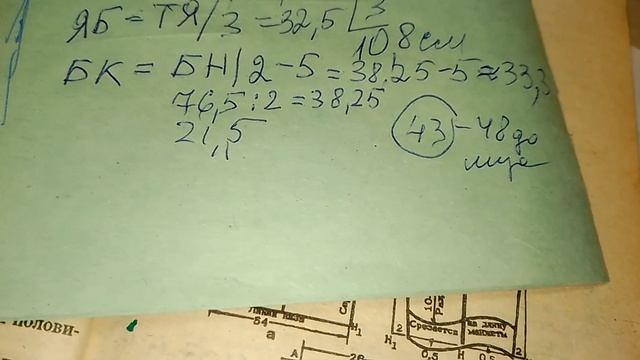 ЯБ = ТЯ/3 = 32,5 | 3
10,8 см
БК = БН/2 - 5 = 38,25 - 5 ≈ 33,3
76,5 : 2 = 38,25
21,5
43 - 48 до
лиця
полови-
54
а
Н₁
Н₁
2
Срезается
на длину
манжеты
2
0,5
Н
0,5
А
26